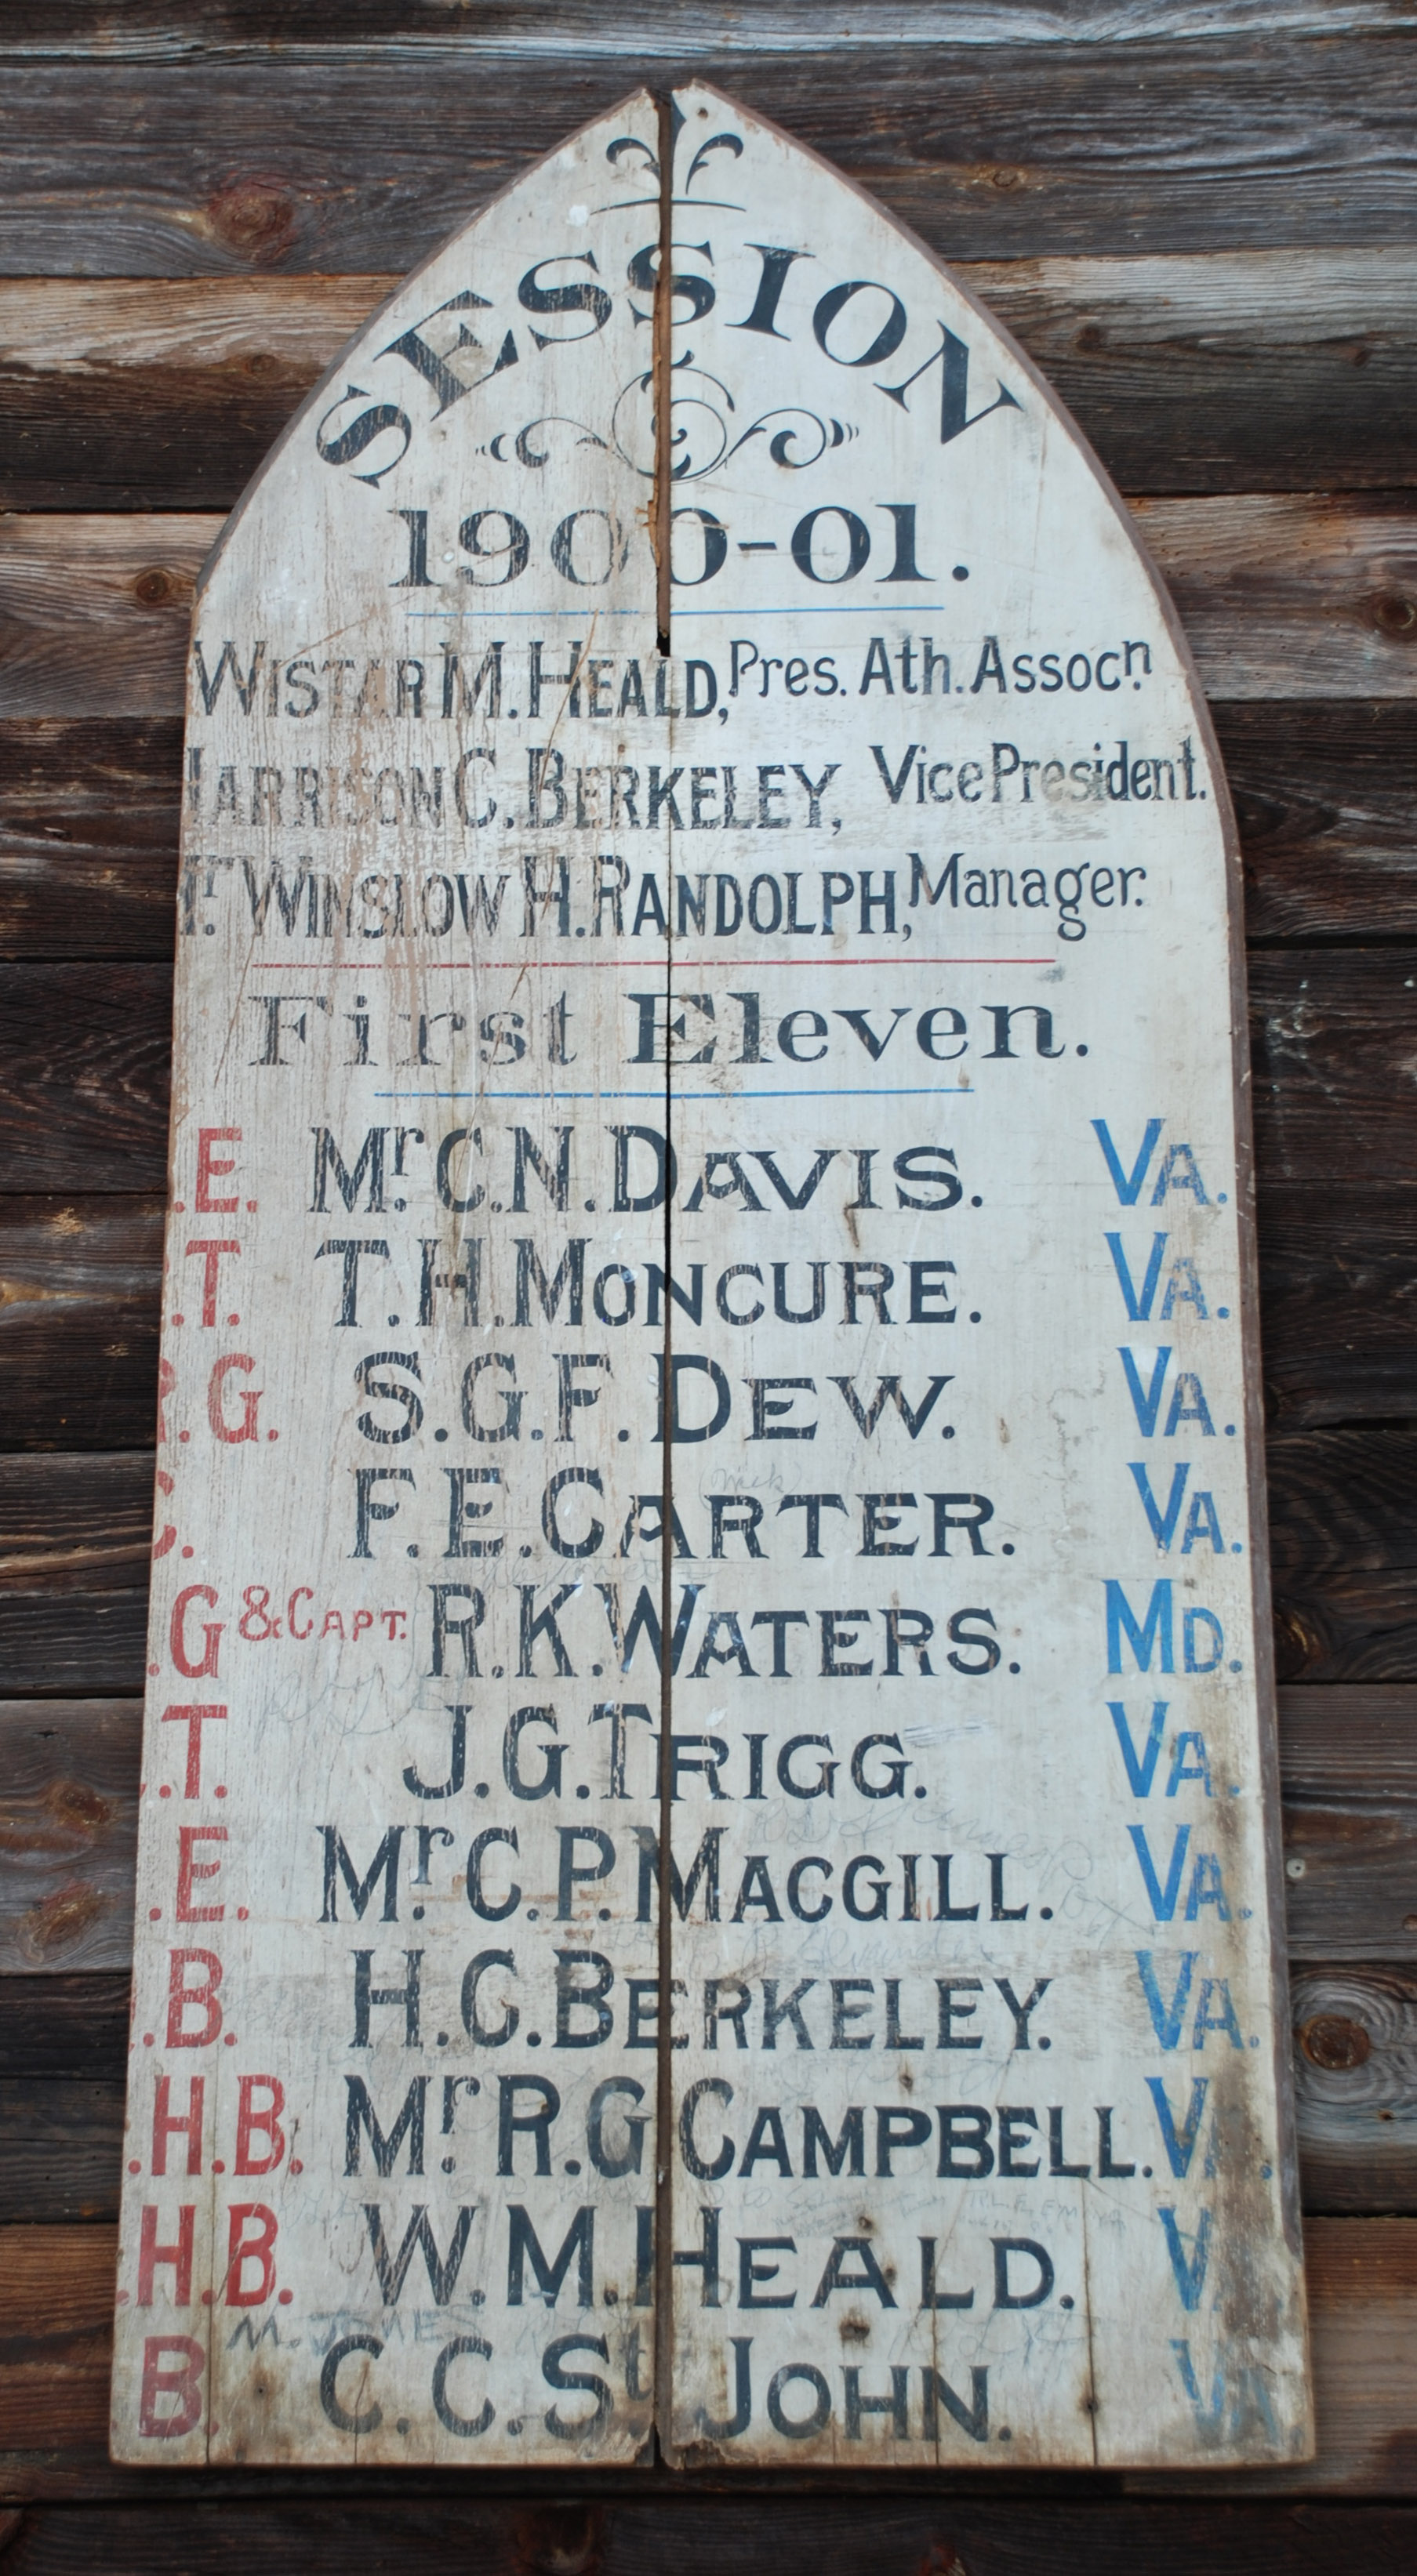 SESSION
1900-01.
WISTAR M. HEALD, Pres. Ath. Assocn.
HARRISON C. BERKELEY, Vice President.
Mr. WINSLOW H. RANDOLPH, Manager.
First Eleven.
.E. Mr. C.N. DAVIS. VA.
.T. T.H. MONCURE. VA.
.G. S.G.F. DEW. VA.
C. F.E. CARTER. VA.
.G & CAPT. R.K. WATERS. MD.
.T. J.G. TRIGG. VA.
.E. Mr. C.P. MACGILL. VA.
.B. H.C. BERKELEY. VA.
.H.B. Mr. R.G CAMPBELL. V
.H.B. W.M. HEALD. V
B. C.C. St JOHN. VA.